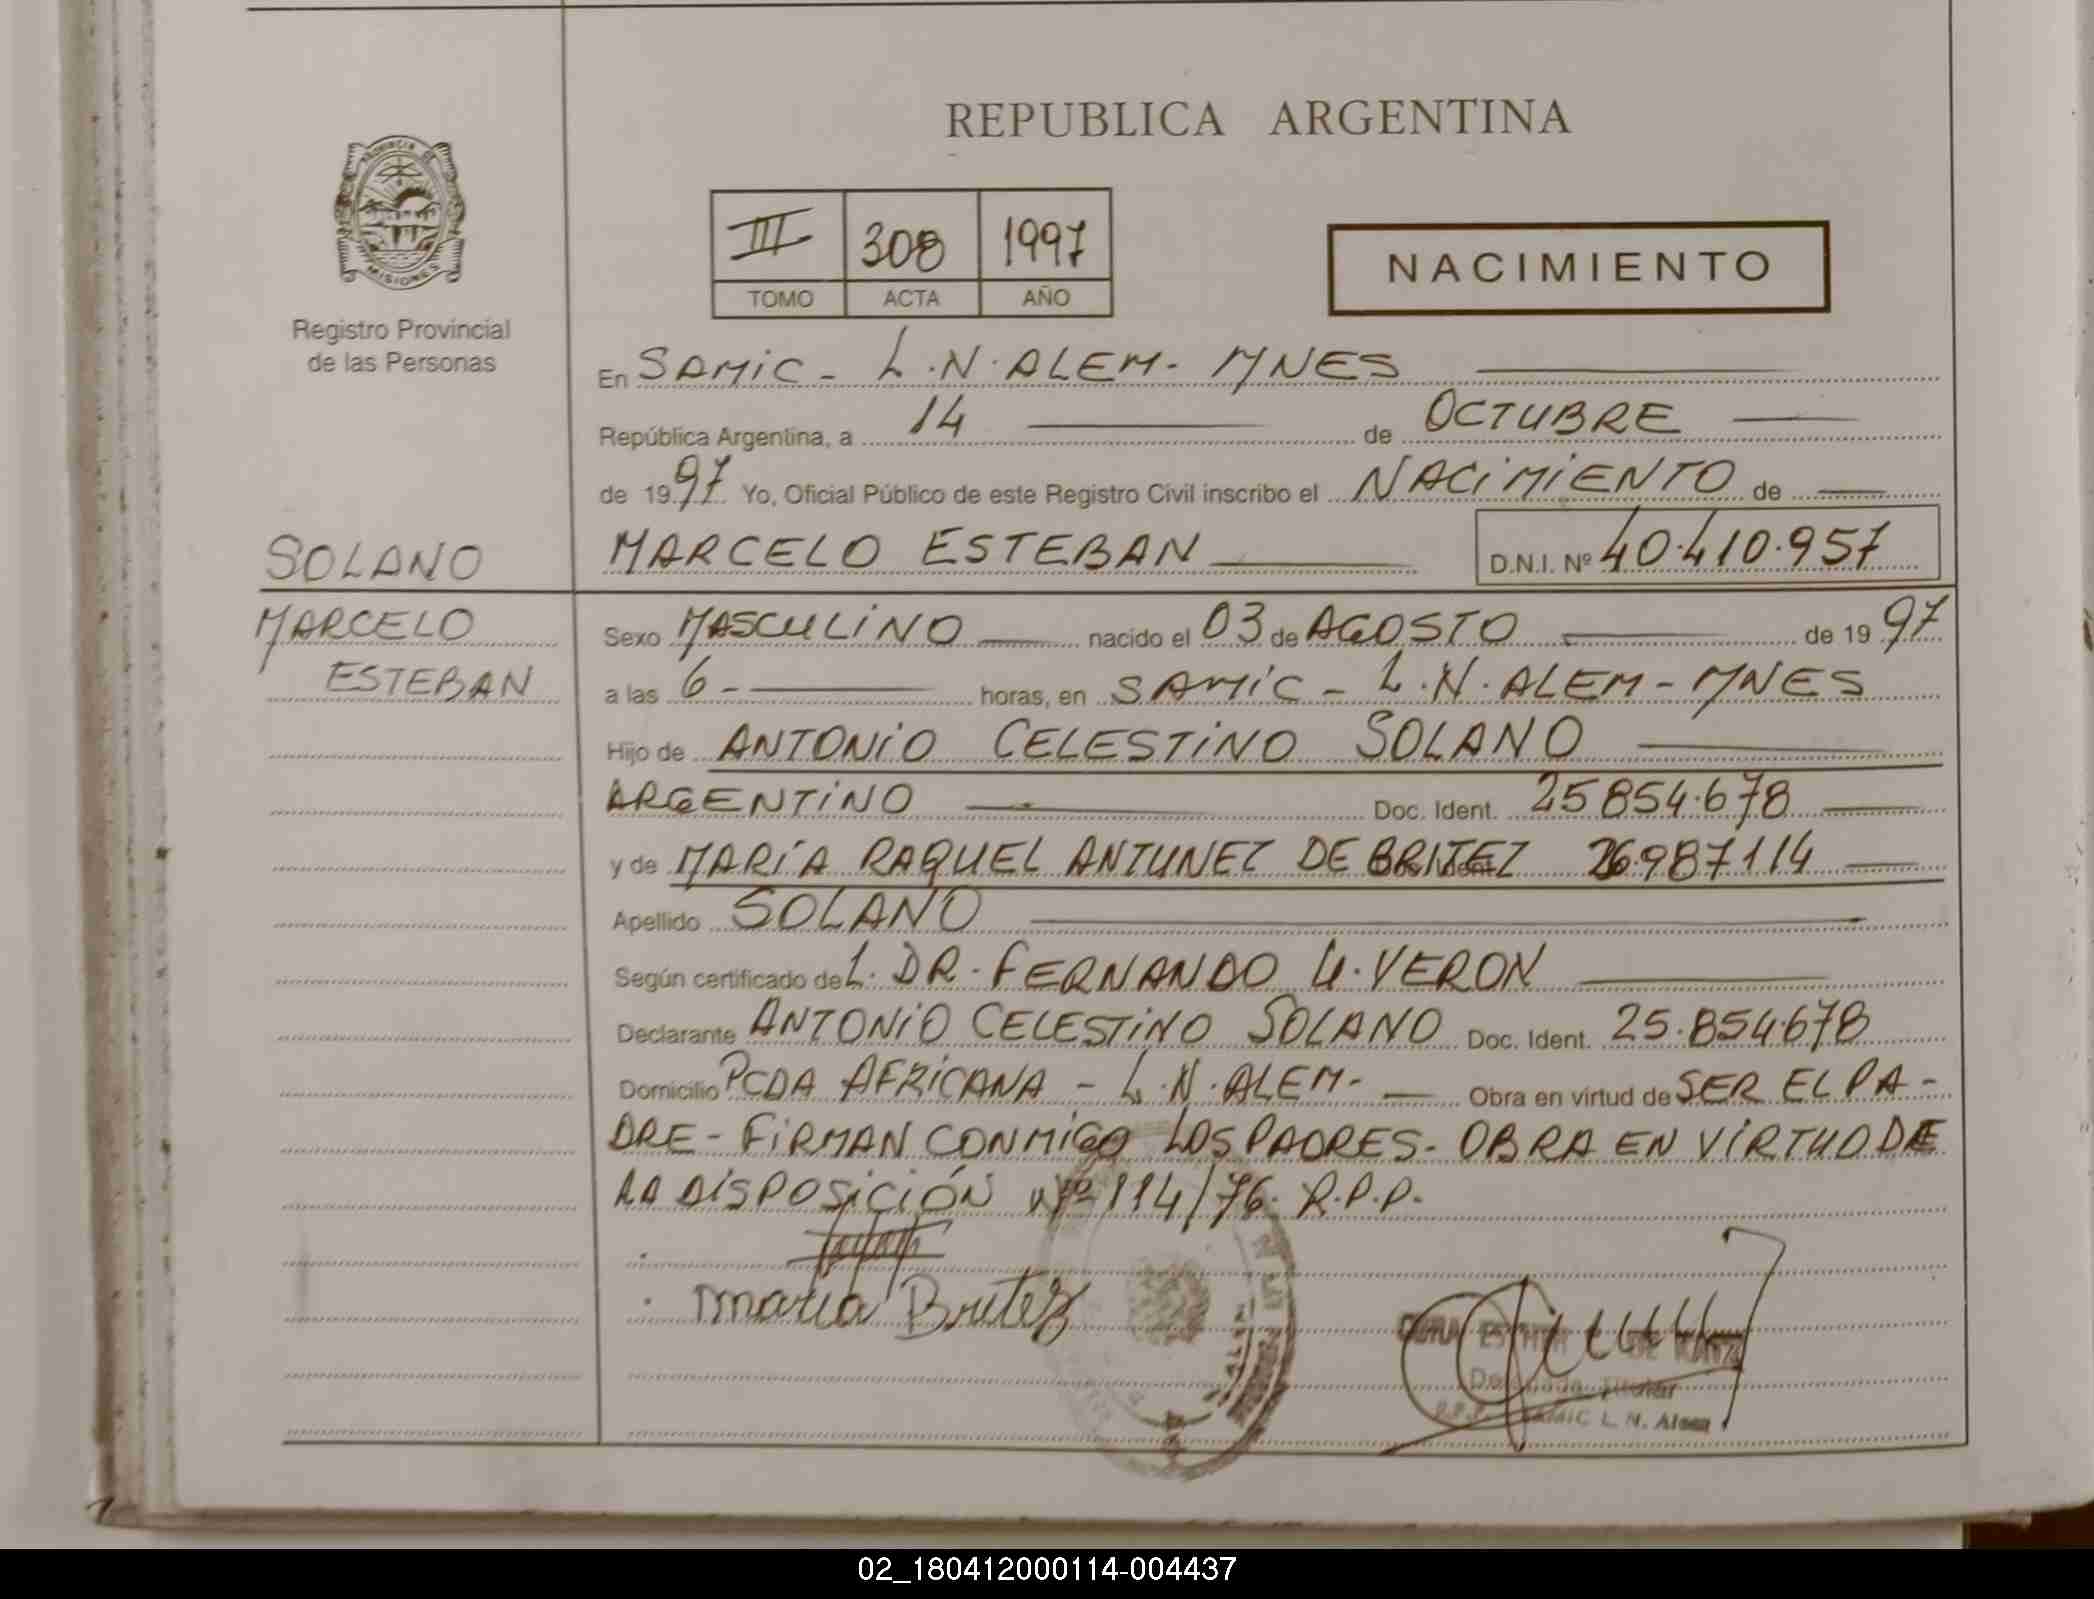 REPUBLICA ARGENTINA
PROVINCIA DE
MISIONES
Registro Provincial
de las Personas
III 308 1997
TOMO ACTA AÑO
NACIMIENTO
En SAMIC - L.N. ALEM - MNES
República Argentina, a 14 de OCTUBRE
de 1997 Yo, Oficial Público de este Registro Civil inscribo el NACIMIENTO de
SOLANO
MARCELO ESTEBAN D.N.I. Nº 40.410.957
MARCELO
ESTEBAN
Sexo MASCULINO nacido el 03 de AGOSTO de 1997
a las 6 - horas, en SAMIC - L.N. ALEM - MNES
Hijo de ANTONIO CELESTINO SOLANO
ARGENTINO Doc. Ident. 25854.678
y de MARÍA RAQUEL ANTUNEZ DE BRITEZ 26.987114
Apellido SOLANO
Según certificado de L. DR. FERNANDO U. VERON
Declarante ANTONIO CELESTINO SOLANO Doc. Ident. 25.854.678
Domicilio PCDA AFRICANA - L.N. ALEM - Obra en virtud de SER EL PA-
DRE - FIRMAN CONMIGO LOS PADRES - OBRA EN VIRTUD DE
LA DISPOSICIÓN Nº 114/76. R.P.P.
maria Britez
DORA ESTHER DE KANZ
Delegada Titular
R.P.P. SAMIC L. N. Alem
02_180412000114-004437